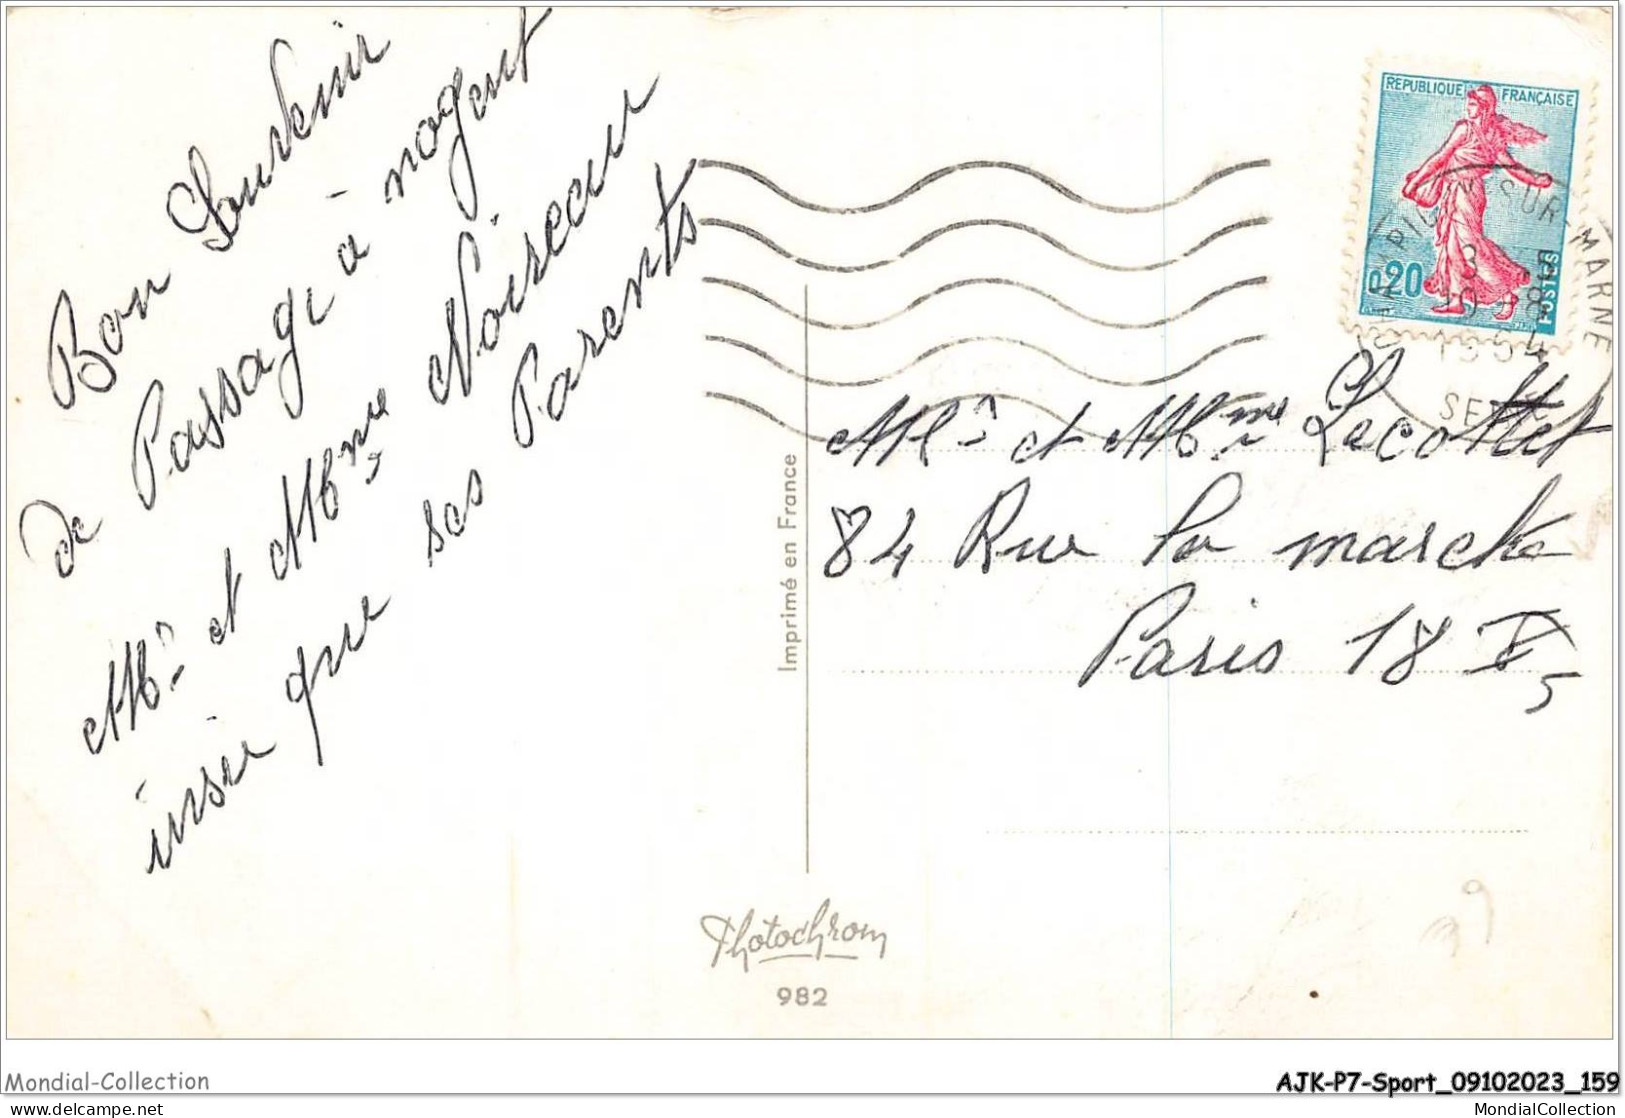 Bon Souvenir
de Passage à nogent
Mr et Mme Noiseau
insie que ses Parents
Imprimé en France
Photochrom
982
REPUBLIQUE FRANÇAISE
0,20
POSTES
SUR MARNE
Mr et Mme Lecottet
84 Rue la marck
Paris 18 E
39
Mondial-Collection
AJK-P7-Sport_09102023_159
delcampe.net
MondialCollection